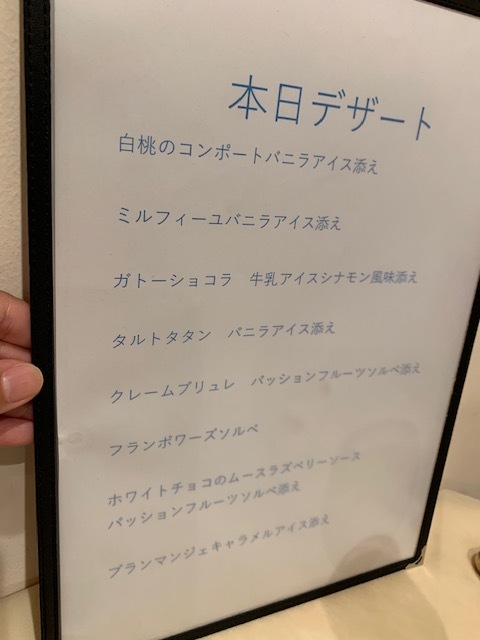 本日デザート
白桃のコンポートバニラアイス添え
ミルフィーユバニラアイス添え
ガトーショコラ　牛乳アイスシナモン風味添え
タルトタタン　バニラアイス添え
クレームブリュレ　パッションフルーツソルベ添え
フランボワーズソルベ
ホワイトチョコのムースラズベリーソース
パッションフルーツソルベ添え
ブランマンジェキャラメルアイス添え